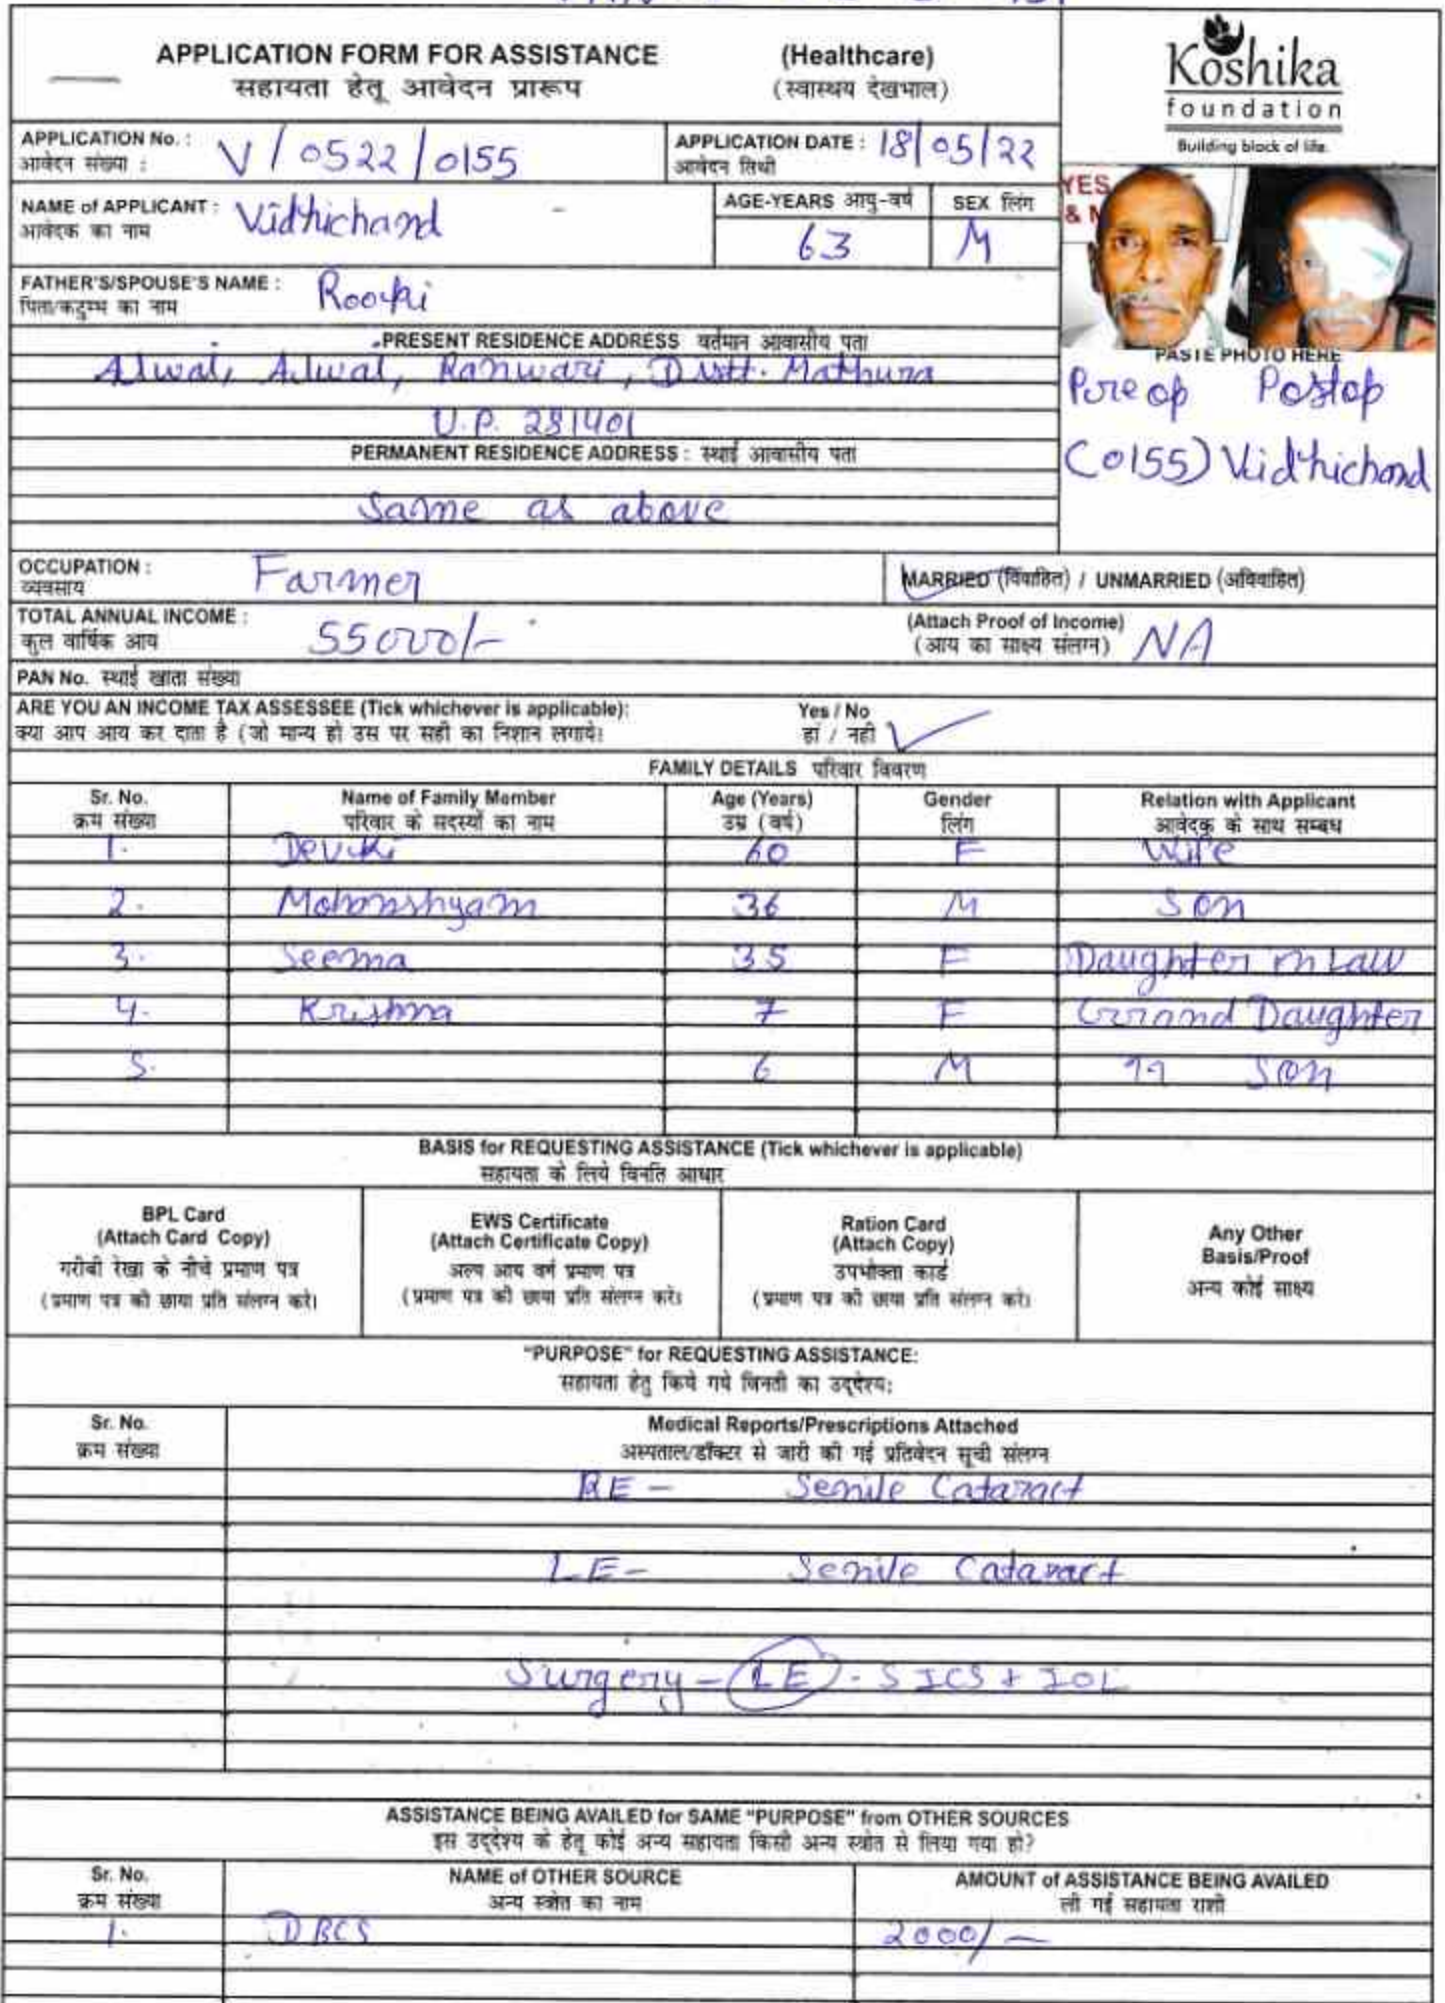 APPLICATION FORM FOR ASSISTANCE (Healthcare)
सहायता हेतू आवेदन प्रारूप (स्वास्थय देखभाल)
Koshika
foundation
Building block of life.
APPLICATION No. : V/0522/0155
आवेदन संख्या :
APPLICATION DATE : 18/05/22
आवेदन तिथी
YES
& N
NAME of APPLICANT : Vidhichand
आवेदक का नाम
AGE-YEARS आयु-वर्ष SEX लिंग
63 M
FATHER'S/SPOUSE'S NAME :
पिता/कटुम्भ का नाम
PRESENT RESIDENCE ADDRESS वर्तमान आवासीय पता
Distt. Mathura
U.P. 281401
PASTE PHOTO HERE
Pre op Postop
(0155) Vidhichand
PERMANENT RESIDENCE ADDRESS : स्थाई आवासीय पता
Same as above
OCCUPATION : Farmer
व्यवसाय
MARRIED (विवाहित) / UNMARRIED (अविवाहित)
TOTAL ANNUAL INCOME : 55000/-
कुल वार्षिक आय
(Attach Proof of Income) NA
(आय का साक्ष्य संलग्न)
PAN No. स्थाई खाता संख्या
ARE YOU AN INCOME TAX ASSESSEE (Tick whichever is applicable): Yes / No
क्या आप आय कर दाता है (जो मान्य हो उस पर सही का निशान लगाये। हां / नही
FAMILY DETAILS परिवार विवरण
Sr. No. Name of Family Member Age (Years) Gender Relation with Applicant
क्रम संख्या परिवार के सदस्यों का नाम उम्र (वर्ष) लिंग आवेदक के साथ सम्बध
1. Devki 60 F Wife
2. Mohanshyam 36 M Son
3. Seema 35 F Daughter in Law
4. Krishna 7 F Grand Daughter
5. 6 M " Son
BASIS for REQUESTING ASSISTANCE (Tick whichever is applicable)
सहायता के लिये विनति आधार
BPL Card
(Attach Card Copy)
गरीबी रेखा के नीचे प्रमाण पत्र
(प्रमाण पत्र की छाया प्रति संलग्न करे।
EWS Certificate
(Attach Certificate Copy)
अल्प आय वर्ग प्रमाण पत्र
(प्रमाण पत्र की छाया प्रति संलग्न करे।
Ration Card
(Attach Copy)
उपभोक्ता कार्ड
(प्रमाण पत्र की छाया प्रति संलग्न करे।
Any Other
Basis/Proof
अन्य कोई साक्ष्य
"PURPOSE" for REQUESTING ASSISTANCE:
सहायता हेतु किये गये विनती का उद्देश्य:
Sr. No. Medical Reports/Prescriptions Attached
क्रम संख्या अस्पताल/डॉक्टर से जारी की गई प्रतिवेदन सूची संलग्न
RE - Senile Cataract
LE - Senile Cataract
Surgery - LE - SICS + IOL
ASSISTANCE BEING AVAILED for SAME "PURPOSE" from OTHER SOURCES
इस उद्देश्य के हेतू कोई अन्य सहायता किसी अन्य स्त्रोत से लिया गया हो?
Sr. No. NAME of OTHER SOURCE AMOUNT of ASSISTANCE BEING AVAILED
क्रम संख्या अन्य स्त्रोत का नाम ली गई सहायता राशी
1. DBCS 2000/-